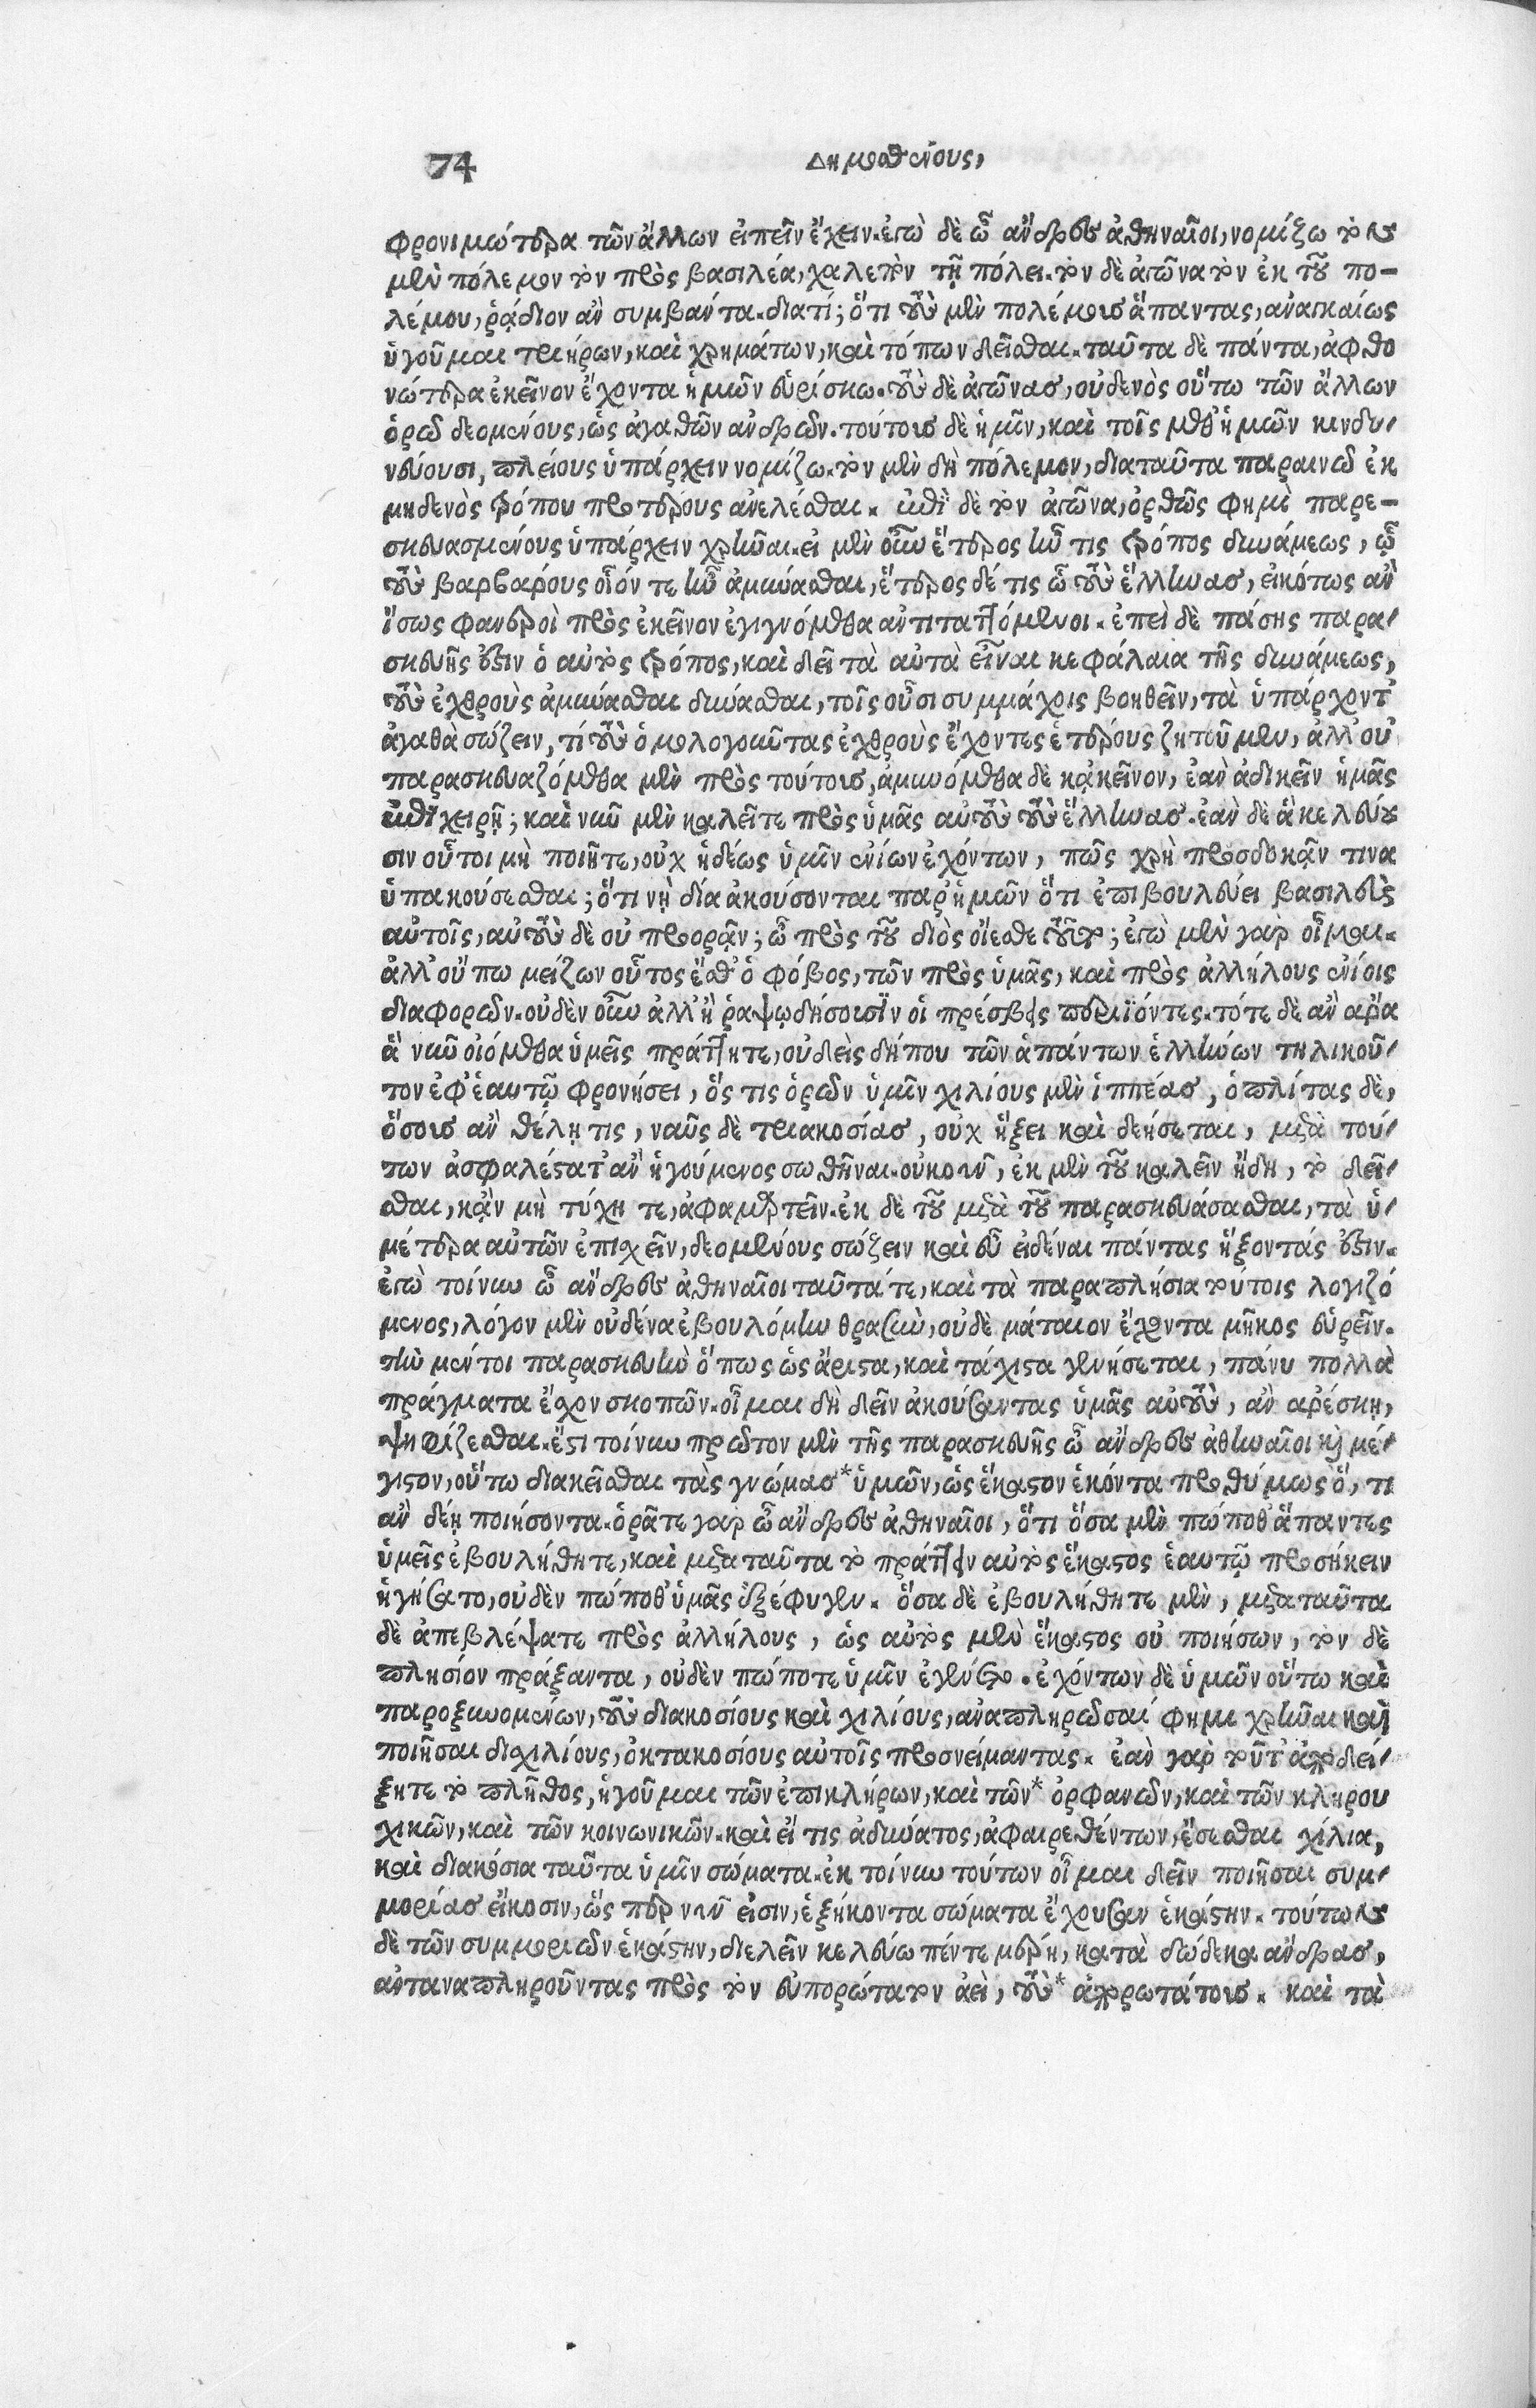 74
Δημοσθένους,
φρονιμώτερα τῶν ἄλλων εἰπεῖν ἔχειν. ἐγὼ δὲ ὦ ἄνδρες ἀθηναῖοι, νομίζω τὸν
μὲν πόλεμον τὸν πρὸς βασιλέα, χαλεπὸν τῇ πόλει. τὸν δὲ ἀγῶνα τὸν ἐκ τοῦ πο-
λέμου, ῥᾴδιον ἂν συμβάντα. διατί; ὅτι τοὺς μὲν πολέμους ἅπαντας, ἀναγκαίως
ἡγοῦμαι τριήρων, καὶ χρημάτων, καὶ τόπων δεῖσθαι. ταῦτα δὲ πάντα, ἀφθο
νώτερα ἐκεῖνον ἔχοντα ἡμῶν εὑρίσκω. τοὺς δὲ ἀγῶνας, οὐδενὸς οὕτω τῶν ἄλλων
ὁρῶ δεομένους, ὡς ἀγαθῶν ἀνδρῶν. τούτους δὲ ἡμῖν, καὶ τοῖς μεθ' ἡμῶν κινδυ-
νεύουσι, πλείους ὑπάρχειν νομίζω. τὸν μὲν δὴ πόλεμον, διαταῦτα παραινῶ ἐκ
μηδενὸς τρόπου προτέρους ἀνελέσθαι. ἐπὶ δὲ τὸν ἀγῶνα, ὀρθῶς φημὶ παρε-
σκευασμένους ὑπάρχειν χρῆναι. εἰ μὲν οὖν ἕτερος ἦν τις τρόπος δυνάμεως, ᾧ
τοὺς βαρβάρους οἷόν τε ἦν ἀμύνασθαι, ἕτερος δέ τις ᾧ τοὺς ἕλληνας, εἰκότως ἂν
ἴσως φανεροὶ πρὸς ἐκεῖνον ἐγιγνόμεθα ἀντιταττόμενοι. ἐπεὶ δὲ πάσης παρα-
σκευῆς ἐστιν ὁ αὐτὸς τρόπος, καὶ δεῖ τὰ αὐτὰ εἶναι κεφάλαια τῆς δυνάμεως,
τοὺς ἐχθροὺς ἀμύνασθαι δύνασθαι, τοῖς οὖσι συμμάχοις βοηθεῖν, τὰ ὑπάρχοντ'
ἀγαθὰ σώζειν, τί τοὺς ὁμολογοῦντας ἐχθροὺς ἔχοντες ἑτέρους ζητοῦμεν, ἀλλ' οὐ
παρασκευαζόμεθα μὲν πρὸς τούτους, ἀμυνόμεθα δὲ κἀκεῖνον, ἐὰν ἀδικεῖν ἡμᾶς
ἐπιχειρῇ; καὶ νῦν μὲν καλεῖτε πρὸς ὑμᾶς αὐτοὺς τοὺς ἕλληνας. ἐὰν δὲ ἃ κελεύου
σιν οὗτοι μὴ ποιῆτε, οὐχ ἡδέως ὑμῖν ἐνίων ἐχόντων, πῶς χρὴ προσδοκᾷν τινα
ὑπακούσεσθαι; ὅτι νὴ δία ἀκούσονται παρ' ἡμῶν ὅτι ἐπιβουλεύει βασιλεὺς
αὐτοῖς, αὐτοὺς δὲ οὐ προορᾷν; ὦ πρὸς τοῦ διὸς οἴεσθε τοῦτο; ἐγὼ μὲν γὰρ οἶμαι.
ἀλλ' οὔπω μείζων οὗτος ἔσθ' ὁ φόβος, τῶν πρὸς ὑμᾶς, καὶ πρὸς ἀλλήλους ἐνίοις
διαφορῶν. οὐδὲν οὖν ἀλλ' ἢ ῥαψῳδήσουσιν οἱ πρέσβεις περιϊόντες. τότε δὲ ἂν ἄρα
ἃ νῦν οἰόμεθα ὑμεῖς πράττητε, οὐδεὶς δήπου τῶν ἁπάντων ἑλλήνων τηλικοῦ-
τον ἐφ' ἑαυτῷ φρονήσει, ὅς τις ὁρῶν ὑμῖν χιλίους μὲν ἱππέας, ὁπλίτας δὲ,
ὅσους ἂν θέλῃ τις, ναῦς δὲ τριακοσίας, οὐχ ἥξει καὶ δεήσεται, μετὰ τού-
των ἀσφαλέστατ' ἂν ἡγούμενος σωθῆναι. οὐκοῦν, ἐκ μὲν τοῦ καλεῖν ἤδη, τὸ δεῖ-
σθαι, κᾂν μὴ τύχητε, ἀφαμαρτεῖν. ἐκ δὲ τοῦ μετὰ τοῦ παρασκευάσασθαι, τὰ ὑ-
μέτερα αὐτῶν ἐπισχεῖν, δεομένους σώζειν καὶ εὖ εἰδέναι πάντας ἥξοντάς ἐστιν.
ἐγὼ τοίνυν ὦ ἄνδρες ἀθηναῖοι ταῦτά τε, καὶ τὰ παραπλήσια τούτοις λογιζό
μενος, λόγον μὲν οὐδένα ἐβουλόμην θρασὺν, οὐδὲ μάταιον ἔχοντα μῆκος εὑρεῖν.
τὴν μέντοι παρασκευὴν ὅπως ὡς ἄριστα, καὶ τάχιστα γενήσεται, πάνυ πολλὰ
πράγματα ἔχον σκοπῶν. οἶμαι δὴ δεῖν ἀκούσαντας ὑμᾶς αὐτοὺς, ἂν ἀρέσκῃ,
ψηφίζεσθαι. ἔστι τοίνυν πρῶτον μὲν τῆς παρασκευῆς ὦ ἄνδρες ἀθηναῖοι καὶ μέ-
γιστον, οὕτω διακεῖσθαι τὰς γνώμας* ὑμῶν, ὡς ἕκαστον ἑκόντα προθύμως ὅ, τι
ἂν δέῃ ποιήσοντα. ὁρᾶτε γὰρ ὦ ἄνδρες ἀθηναῖοι, ὅτι ὅσα μὲν πώποθ' ἅπαντες
ὑμεῖς ἐβουλήθητε, καὶ μετὰ ταῦτα τὸ πράττειν αὐτὸς ἕκαστος ἑαυτῷ προσήκειν
ἡγήσατο, οὐδὲν πώποθ' ὑμᾶς ἐξέφυγεν. ὅσα δὲ ἐβουλήθητε μὲν, μετὰ ταῦτα
δὲ ἀπεβλέψατε πρὸς ἀλλήλους, ὡς αὐτὸς μὲν ἕκαστος οὐ ποιήσων, τὸν δὲ
πλησίον πράξαντα, οὐδὲν πώποτε ὑμῖν ἐγένετο. ἐχόντων δὲ ὑμῶν οὕτω καὶ
παροξυνομένων, τοὺς διακοσίους καὶ χιλίους, ἀναπληρῶσαί φημι χρῆναι καὶ
ποιῆσαι δισχιλίους, ὀκτακοσίους αὐτοῖς προσνείμαντας. ἐὰν γὰρ τοῦτ' ἀποδεί-
ξητε τὸ πλῆθος, ἡγοῦμαι τῶν ἐπικλήρων, καὶ τῶν* ὀρφανῶν, καὶ τῶν κληρου
χικῶν, καὶ τῶν κοινωνικῶν. καὶ εἴ τις ἀδύνατος, ἀφαιρεθέντων, ἔσεσθαι χίλια,
καὶ διακόσια ταῦτα ὑμῖν σώματα. ἐκ τοίνυν τούτων οἶμαι δεῖν ποιῆσαι συμ-
μορίας εἴκοσιν, ὥς περ νῦν εἰσιν, ἑξήκοντα σώματα ἔχουσαν ἑκάστην. τούτων
δὲ τῶν συμμοριῶν ἑκάστην, διελεῖν κελεύω πέντε μέρη, κατὰ δώδεκα ἄνδρας,
ἀνταναπληροῦντας πρὸς τὸν εὐπορώτατον ἀεὶ, τοὺς* ἀπορωτάτους. καὶ τὰ